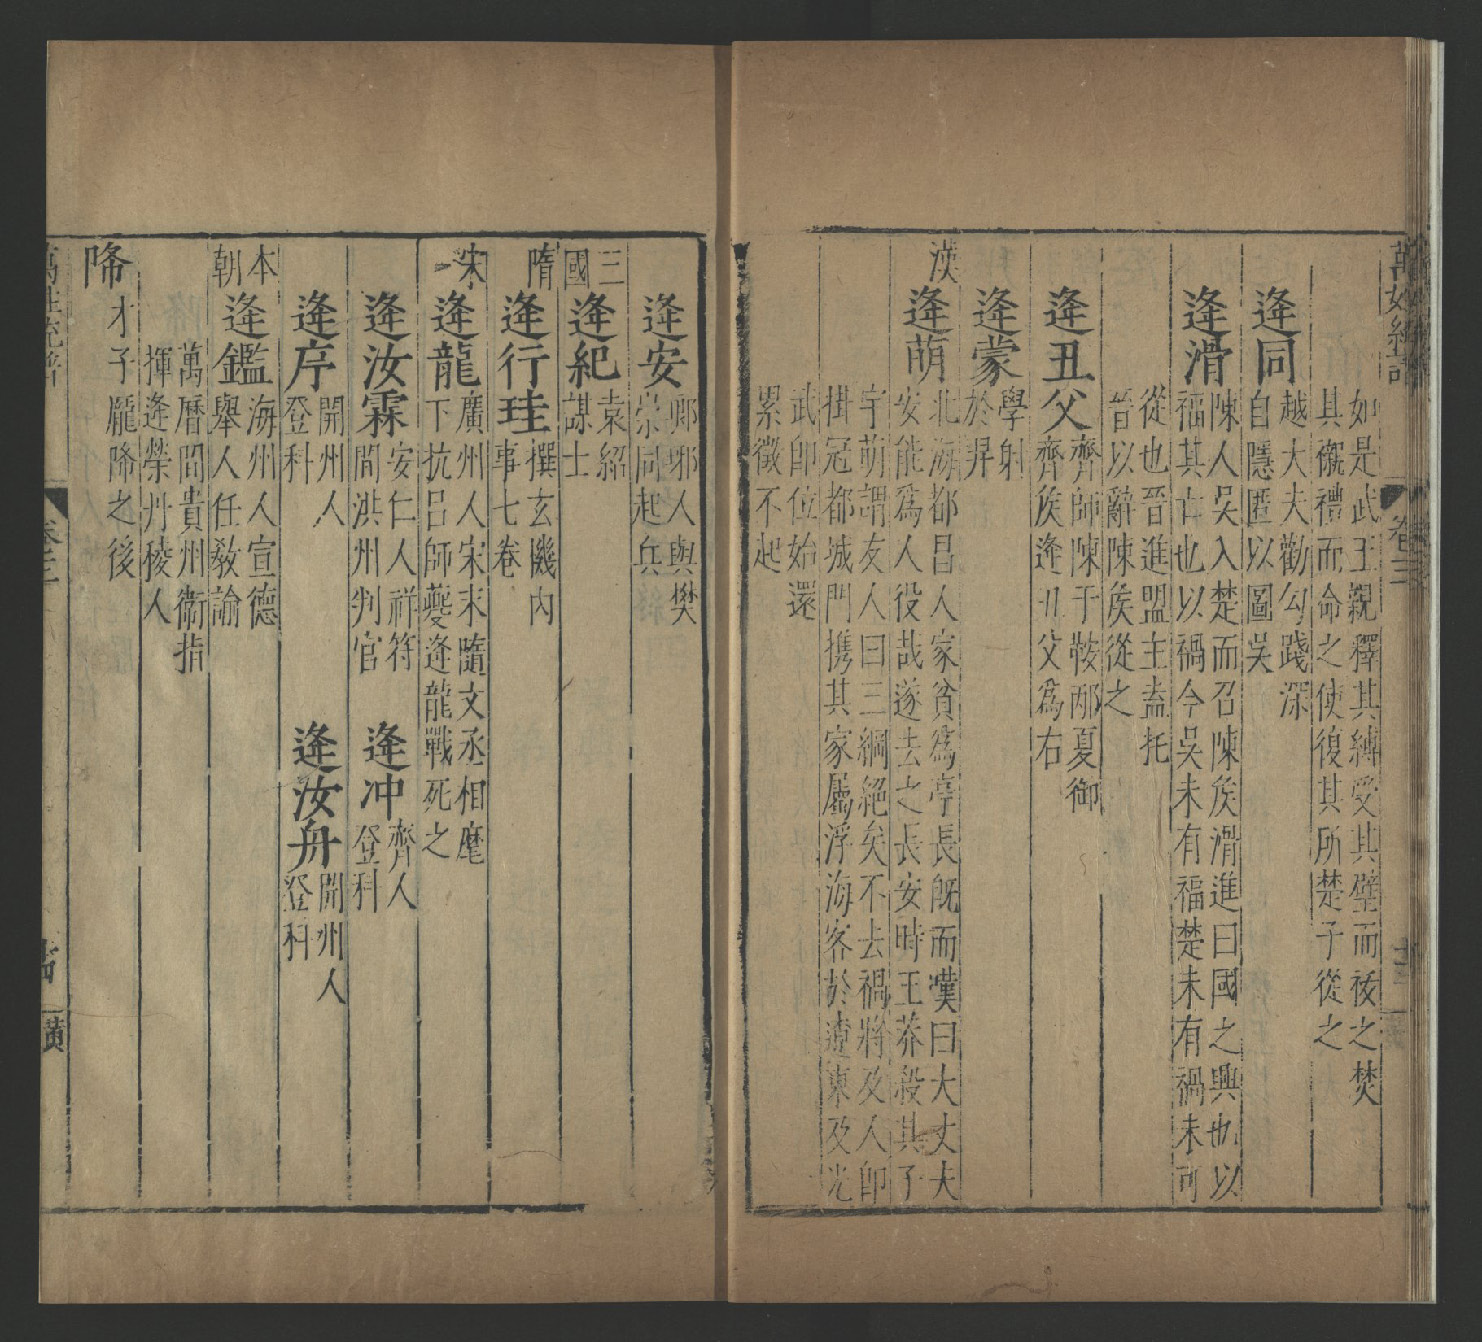 如是武王親釋其縛受其璧而祓之焚
其櫬禮而命之使復其所楚子從之
逄同越大夫勸勾踐深
自隱匿以圖吳
逄滑陳人吳入楚而召陳矦滑進曰國之興也以
福其亡也以禍今吳未有福楚未有禍未可
從也晉進盟主盍托
晉以辭陳矦從之
逄丑父齊師陳于鞍邴夏御
齊矦逄丑父爲右
逄蒙學射
於羿
漢
逄萌北海都昌人家貧爲亭長旣而嘆曰大丈夫
安能爲人役哉遂去之長安時王莽殺其子
宇萌謂友人曰三綱絕矣不去禍將及人卽
掛冠都城門携其家屬浮海客於遼東及光
武卽位始還
累徵不起
卷三
逄安瑯琊人與樊
崇同起兵
三國
逄紀袁紹
謀士
隋
逄行珪撰玄機內
事七卷
宋
逄龍廣州人宋末隨文丞相麾
下抗呂師夔逄龍戰死之
逄汝霖安仁人祥符
間洪州判官
逄冲齊人
登科
逄序開州人
登科
逄汝舟開州人
登科
本朝
逄鑑海州人宣德
舉人任敎諭
萬曆間貴州衛指
揮逄榮丹稜人
降
才子龐降之後
萬姓統譜
卷三